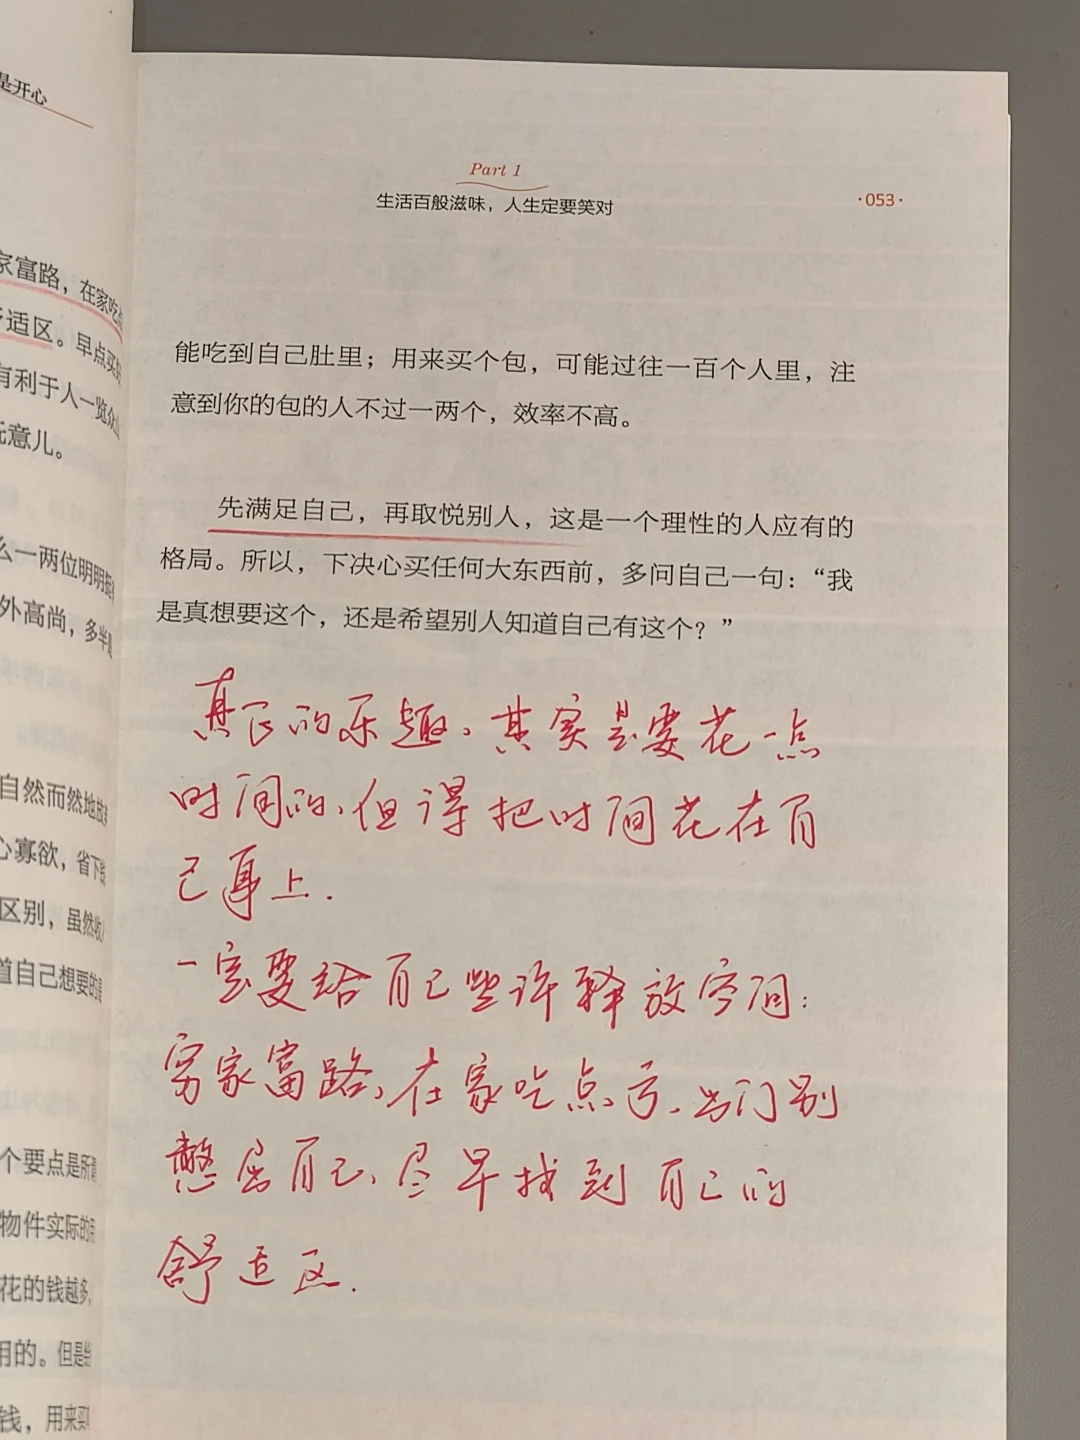 是开心
家富路，在家吃点
适区。早点买
有利于人一览众山
意儿。
么一两位明明
外高尚，多半
自然而然地放
心寡欲，省下
区别，虽然收
道自己想要的是
个要点是所
物件实际的用
花的钱越多，
用的。但是
钱，用来买
Part 1
生活百般滋味，人生定要笑对
·053·
能吃到自己肚里；用来买个包，可能过往一百个人里，注
意到你的包的人不过一两个，效率不高。
先满足自己，再取悦别人，这是一个理性的人应有的
格局。所以，下决心买任何大东西前，多问自己一句：“我
是真想要这个，还是希望别人知道自己有这个？”
真正的乐趣。其实是要花一点
时间的，但得把时间花在自
己身上.
一定要给自己些许释放空间：
穷家富路，在家吃点亏，出门别
憋屈自己，尽早找到自己的
舒适区.